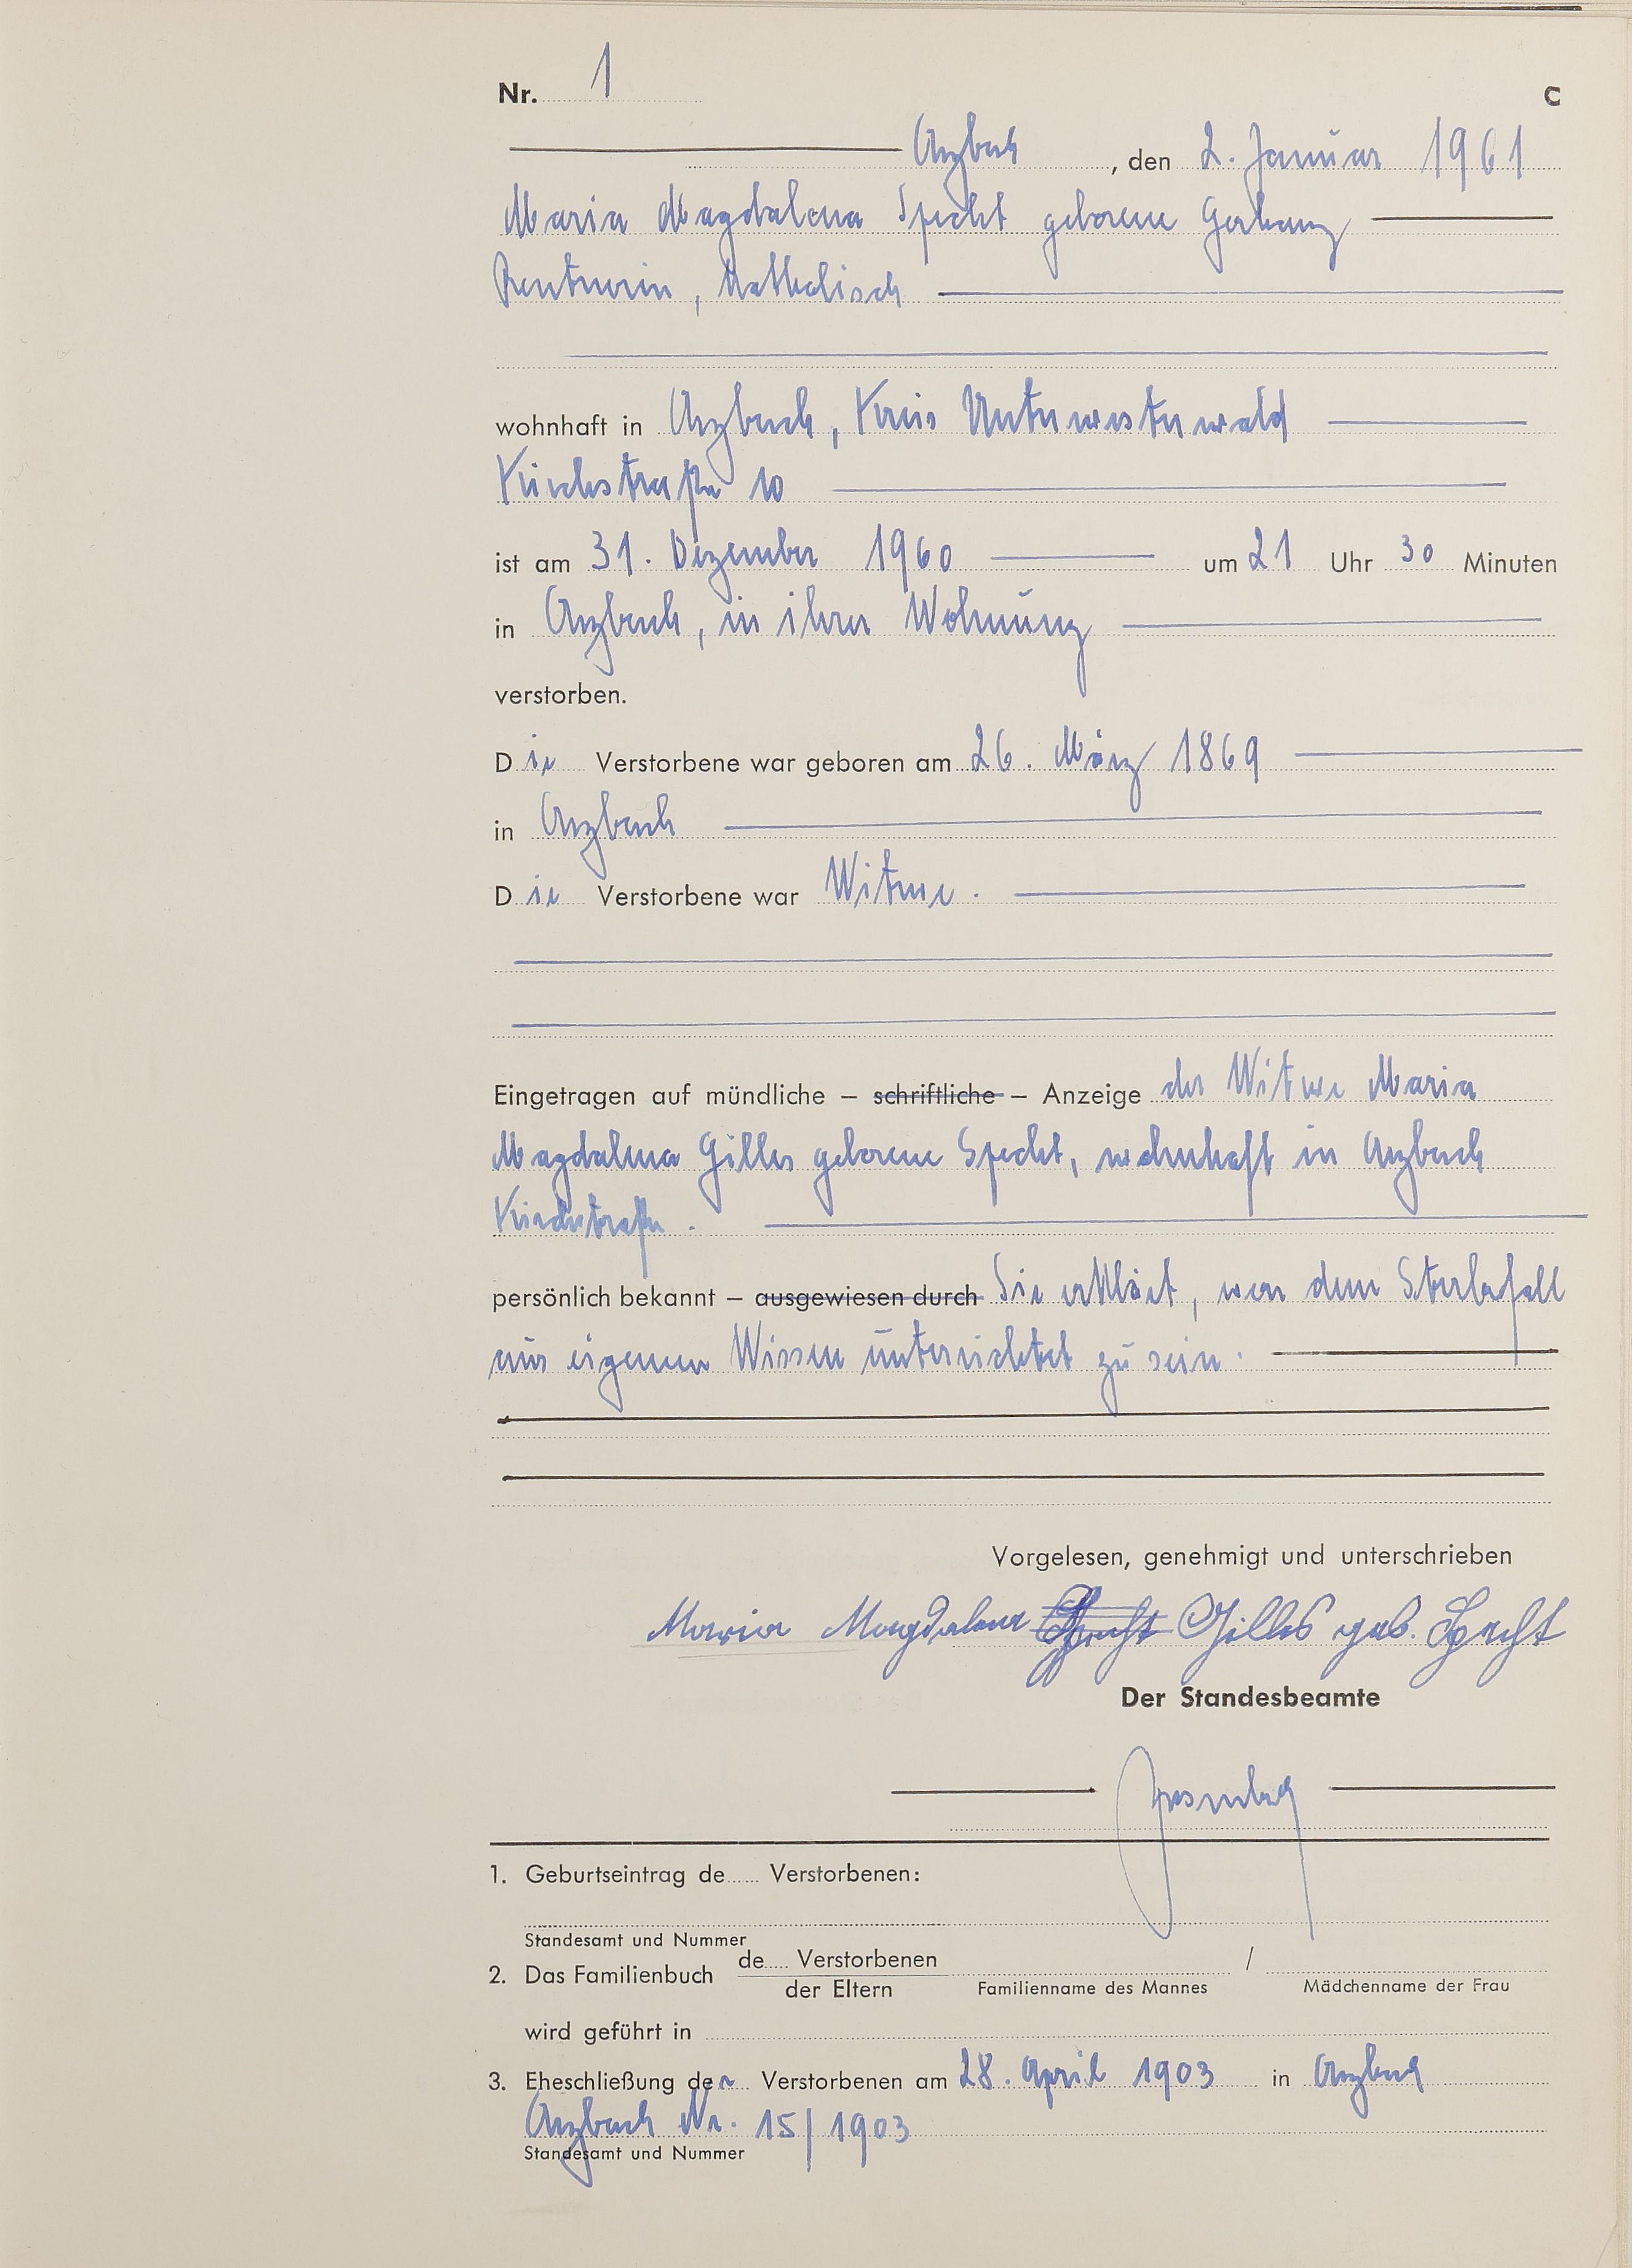 Nr. 1 C
Arzbach, den 2. Januar 1961
Maria Magdalena Specht geborene Gerhanz
Rentnerin, katholisch
wohnhaft in Arzbach, Kreis Unterwesterwald
Kirchstraße 10
ist am 31. Dezember 1960 um 21 Uhr 30 Minuten
in Arzbach, in ihrer Wohnung
verstorben.
Die Verstorbene war geboren am 26. März 1869
in Arzbach
Die Verstorbene war Witwe.
Eingetragen auf mündliche – schriftliche – Anzeige der Witwe Maria
Magdalena Gilles geborene Specht, wohnhaft in Arzbach
Kirchstraße.
persönlich bekannt – ausgewiesen durch Sie erklärt, von dem Sterbefall
aus eigenem Wissen unterrichtet zu sein.
Vorgelesen, genehmigt und unterschrieben
Maria Magdalena Specht Gilles geb. Specht
Der Standesbeamte
1. Geburtseintrag de Verstorbenen:
Standesamt und Nummer
2. Das Familienbuch de Verstorbenen /
der Eltern Familienname des Mannes Mädchenname der Frau
wird geführt in
3. Eheschließung der Verstorbenen am 28. April 1903 in Arzbach
Arzbach Nr. 15/1903
Standesamt und Nummer